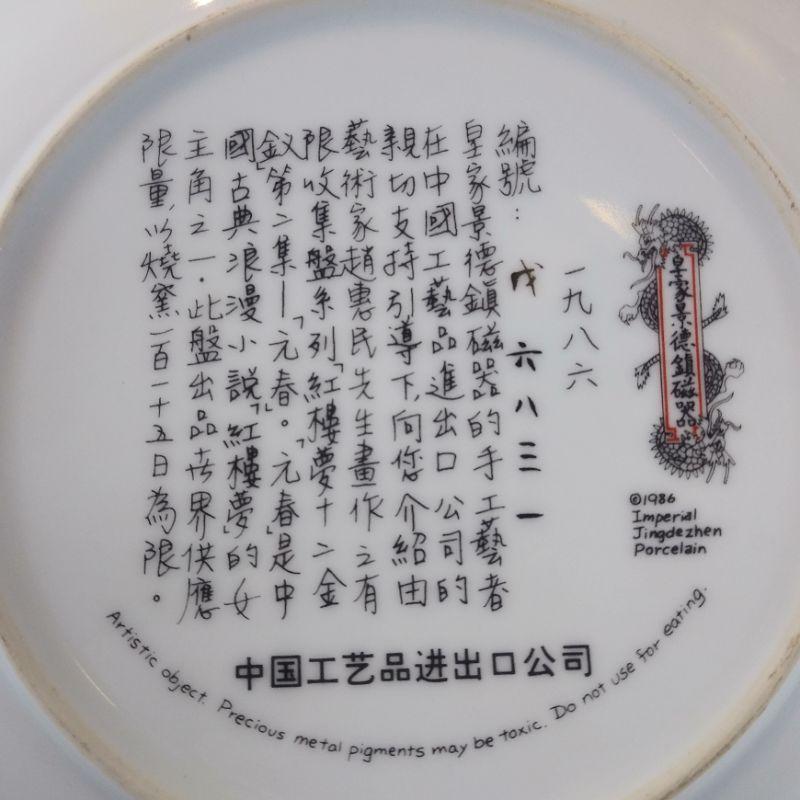 皇家景德鎮磁器
©1986
Imperial
Jingdezhen
Porcelain
一九八六
編號：戊六八三一
皇家景德鎮磁器的手工藝者
在中國工藝品進出口公司的
親切支持引導下，向您介紹由
藝術家趙惠民先生畫作之有
限收集盤系列「紅樓夢十二金
釵」第二集—「元春」。「元春」是中
國古典浪漫小說「紅樓夢」的女
主角之一．此盤出品世界供應
限量，以燒窯一百一十五日為限。
中国工艺品进出口公司
Artistic object. Precious metal pigments may be toxic. Do not use for eating.